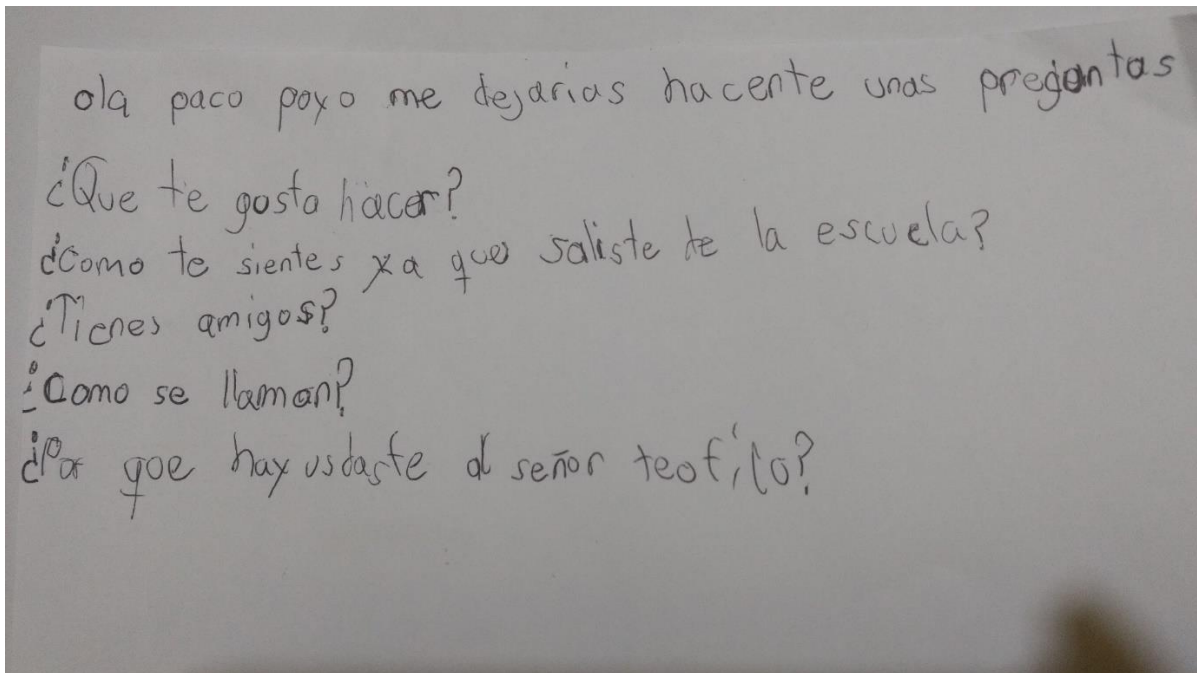 ola paco poyo me dejarias hacente unas pregantas
¿Que te gosta hacer?
¿como te sientes ya que saliste te la escuela?
¿Tienes amigos?
¿Como se llaman?
¿Por qoe hayusdaste al señor teofilo?